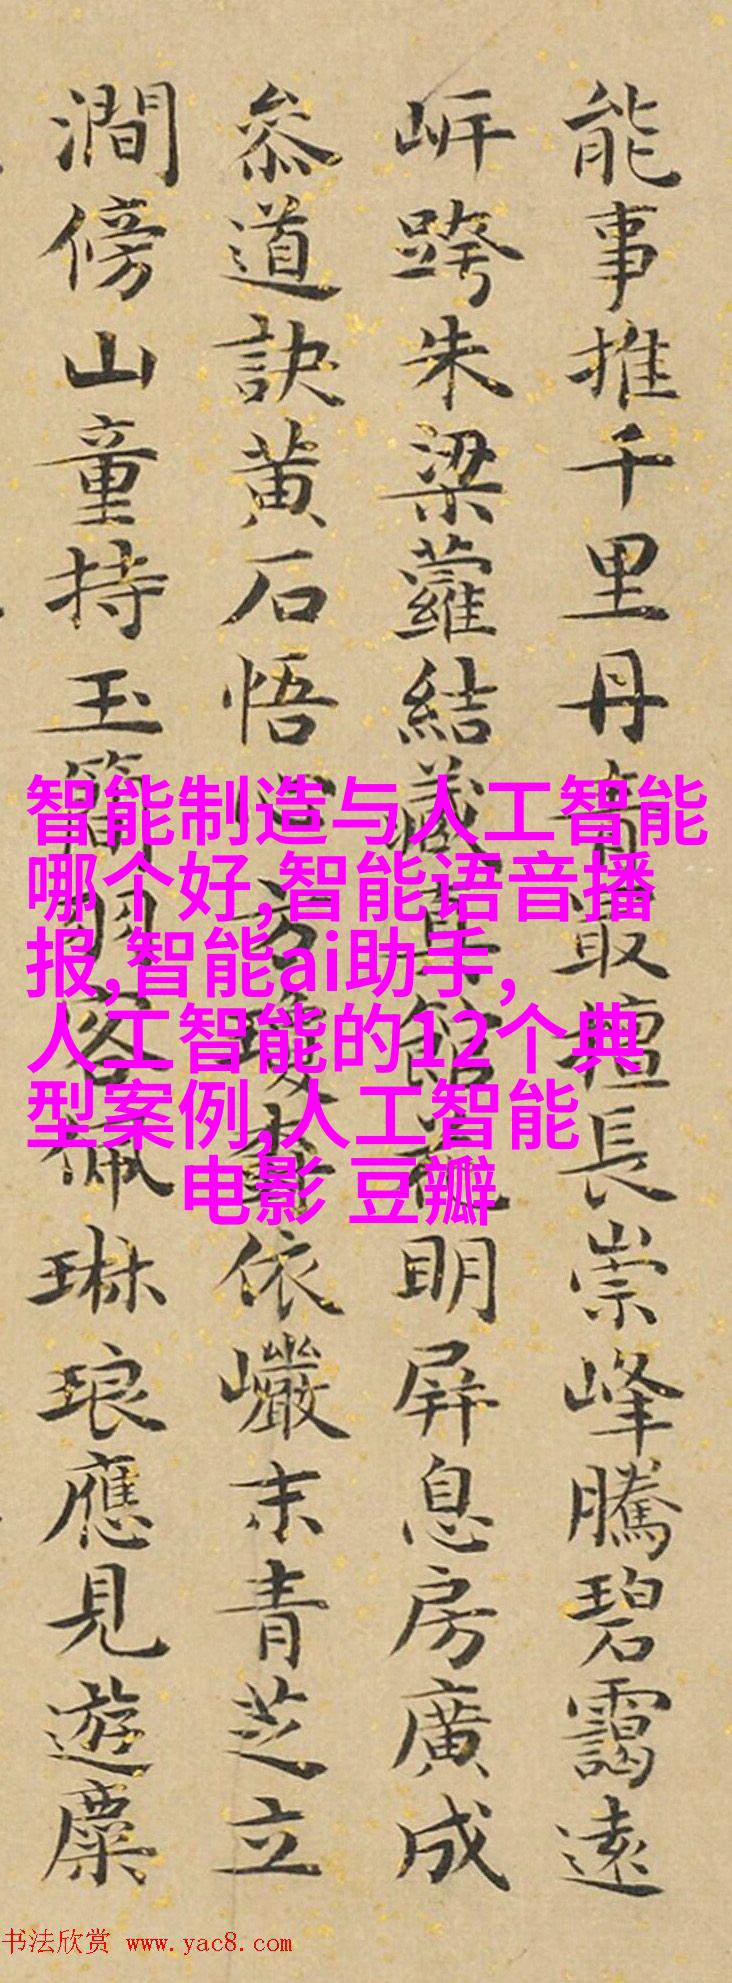 能事推千里丹青最擅長崇峰騰碧靄遠
岍跨朱梁蘿結藏館明屏息房廣成
叅道訣黃石悟依巘末青芝立
澗傍山童持玉簡客佩琳琅應見遊麋
智能制造与人工智能
哪个好,智能语音播
报,智能ai助手,
人工智能的12个典
型案例,人工智能
电影 豆瓣
书法欣赏 www.yac8.com